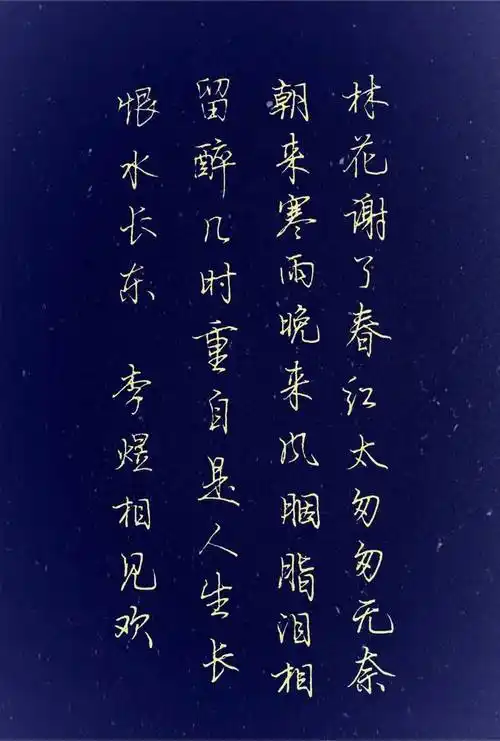 林花谢了春红太匆匆无奈
朝来寒雨晚来风胭脂泪相
留醉几时重自是人生长
恨水长东 李煜相见欢